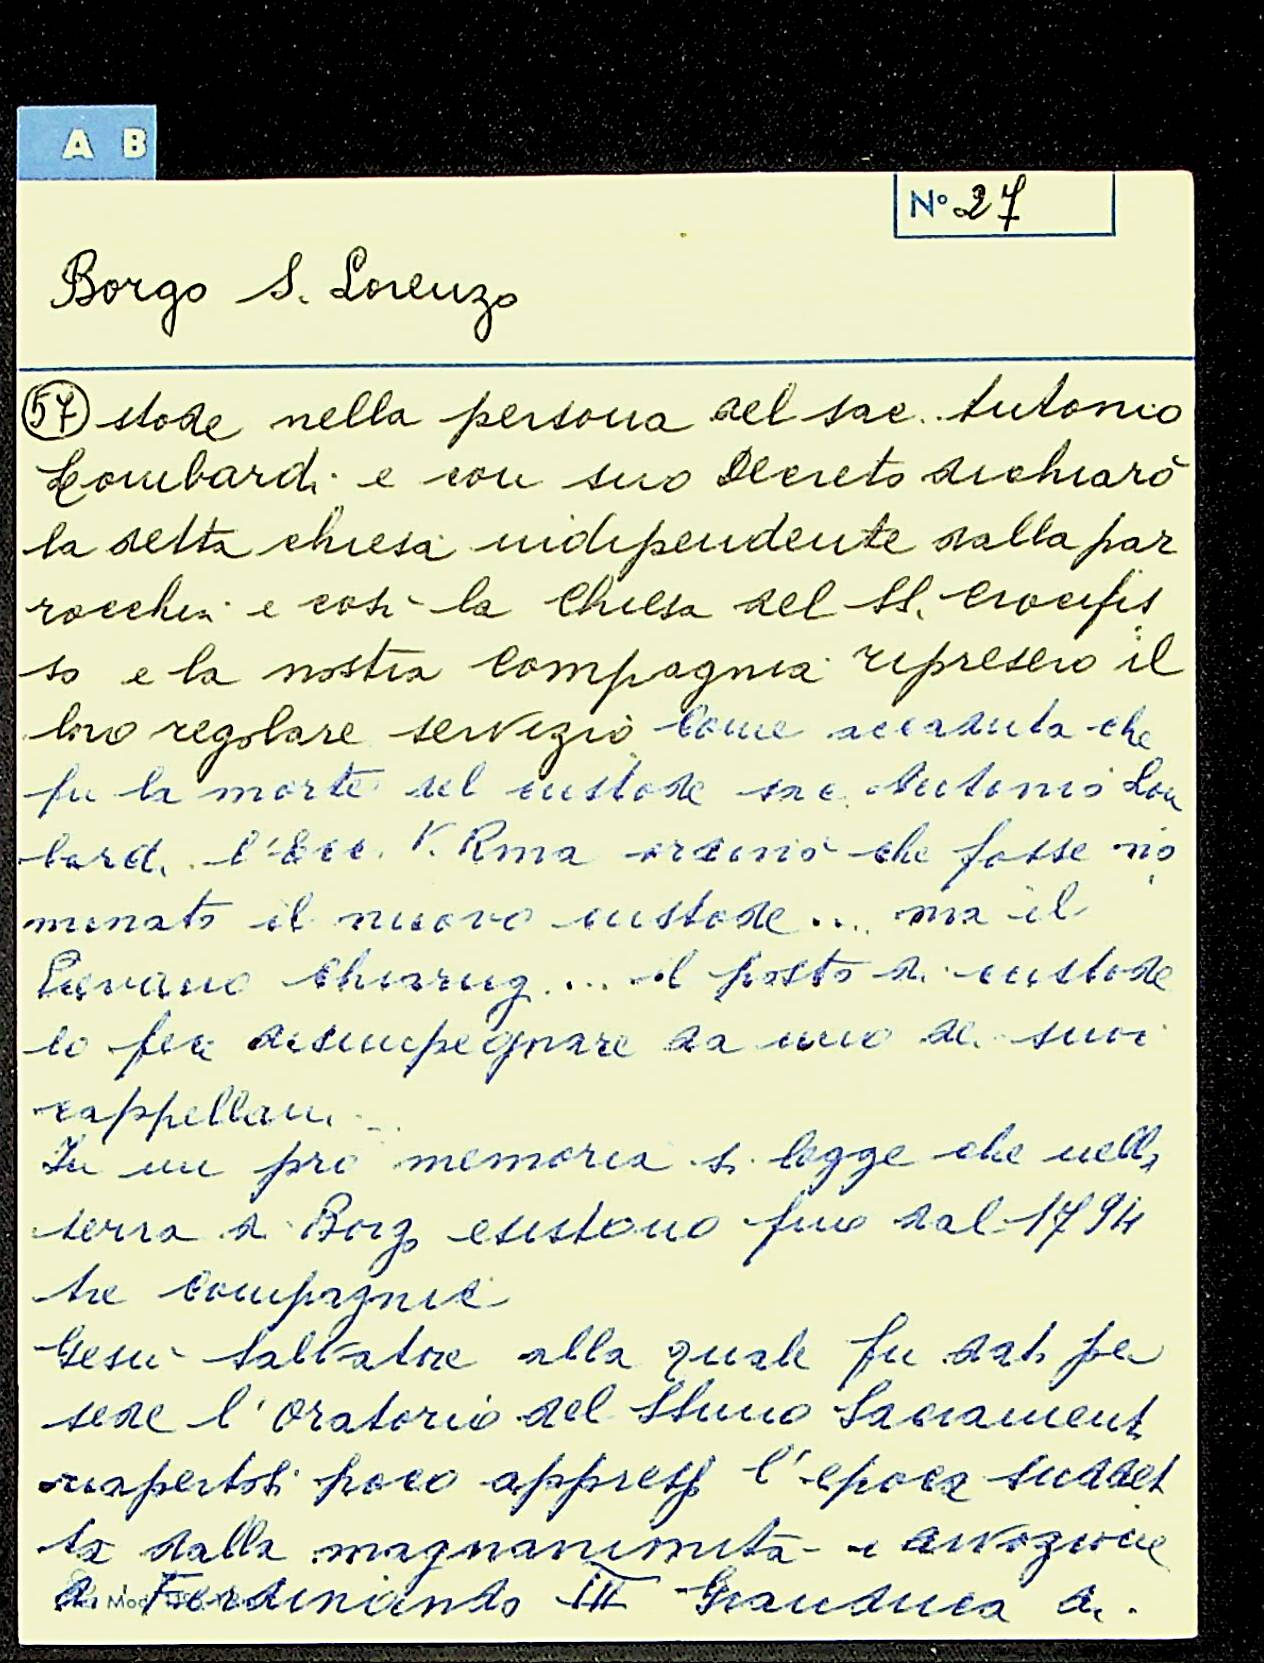 A B
N° 27
Borgo S. Lorenzo
57 stode nella persona del sac. Antonio
Lombardi e con suo Decreto dichiarò
la detta chiesa indipendente dalla par
rocchia e così la Chiesa del SS. Crocifis
so e la nostra Compagnia ripresero il
loro regolare servizio Come accaduta che
fu la morte del custode sac. Antonio Lom
bardi l'Ecc. V. Rma ordinò che fosse no
minato il nuovo custode ... ma il
Pievano Chiarugi ... il posto di custode
lo fece disimpegnare da uno dei suoi
cappellani
In un pro memoria si legge che nella
terra di Borgo esistono fino dal 1794
tre Compagnie
Gesù Salvatore alla quale fu data per
sede l'Oratorio del SSmo Sacramento
riapertosi poco appresso l'epoca suddet
ta dalla magnanimità e devozione
di Ferdinando III Granduca di
Mod.